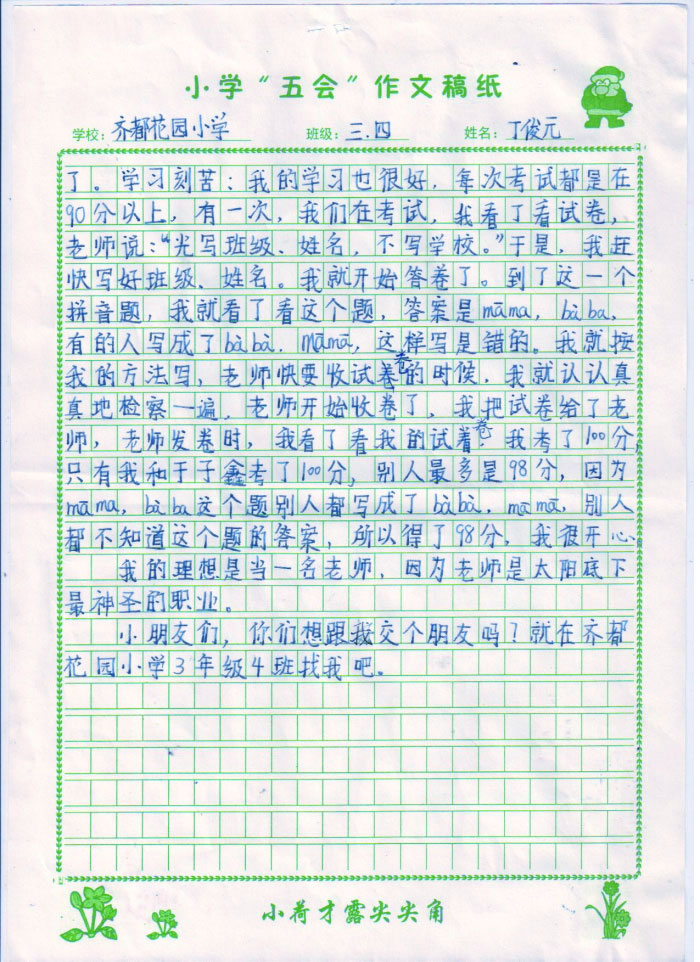 小学“五会”作文稿纸
学校：齐都花园小学 班级：三.四 姓名：丁俊元
了。学习刻苦：我的学习也很好，每次考试都是在
90分以上，有一次，我们在考试，我看了看试卷，
老师说：“先写班级、姓名，不写学校。”于是，我赶
快写好班级、姓名。我就开始答卷了。到了这一个
拼音题，我就看了看这个题，答案是māma，bàba，
有的人写成了bàbà．māmā，这样写是错的。我就按
我的方法写，老师快要收试卷的时候，我就认认真
真地检察一遍，老师开始收卷了，我把试卷给了老
师，老师发卷时，我看了看我的试卷：我考了100分，
只有我和于子鑫考了100分，别人最多是98分，因为
māma，bàba这个题别人都写成了bàbà，māmā，别人
都不知道这个题的答案，所以得了98分，我很开心
我的理想是当一名老师，因为老师是太阳底下
最神圣的职业。
小朋友们，你们想跟我交个朋友吗？就在齐都
花园小学3年级4班找我吧。
小荷才露尖尖角